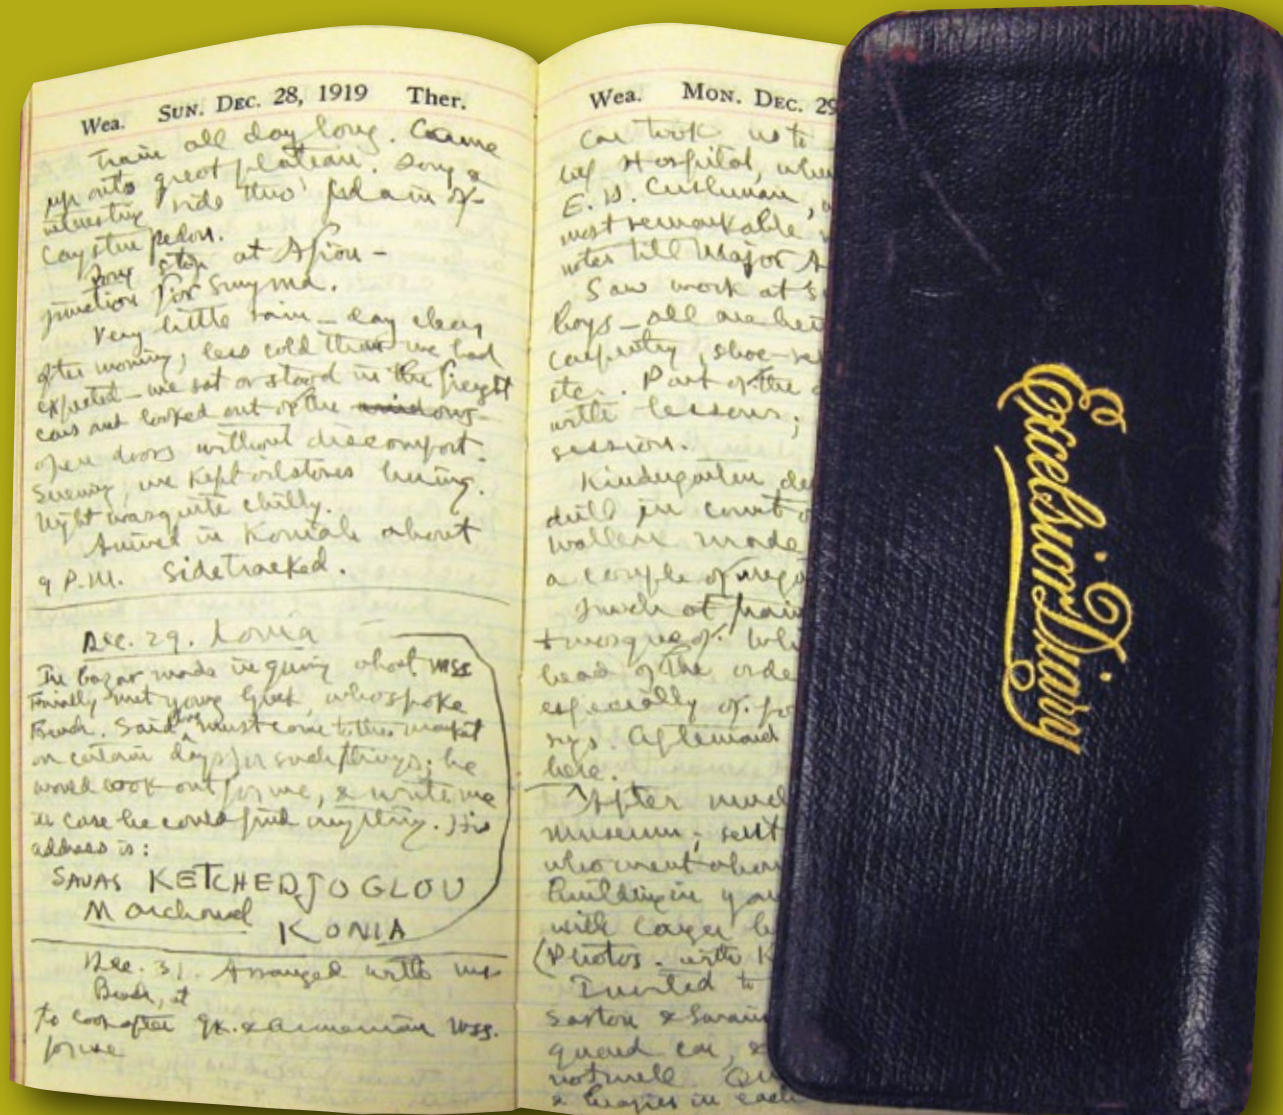 Wea. SUN. DEC. 28, 1919 Ther.
Train all day long. Came
up onto great plateau. Long &
interesting ride thro' plain of
Caystru pedon.
Long stop at Afion -
junction for Smyrna.
Very little rain - day clear
after morning; less cold than we had
expected - we sat or stood in the freight
cars and looked out of the
open doors without discomfort.
Evening, we kept oilstoves burning.
Night was quite chilly.
Arrived in Koniah about
9 P.M. Sidetracked.
Dec. 29. Konia
In bazar made inquiry about mss
Finally met young Greek, who spoke
French. Said must come to this market
on certain days for such things; he
would look out for me, & write me
in case he could find anything. His
address is:
SAVAS KETCHEDJOGLOU
Marchand
KONIA
Dec. 31. Arranged with
to look after gk. & armenian mss.
for me
Wea. MON. DEC. 29
Car took us to
Hospital, where
E. D. Cushman,
most remarkable
notes till Major
Saw work at
boys - all are
carpentry, shoe-
etc. Part of the
with lessons;
session.
Kindergarten
drill in court
made
a couple of
Lunch at
& mosque of
head of the order
especially of
sys. Afterward
here.
After
museum; sent
who went
building in
with large
(Photos. with K
Invited to
guard car, &
not well.
& in each
Excelsior Diary